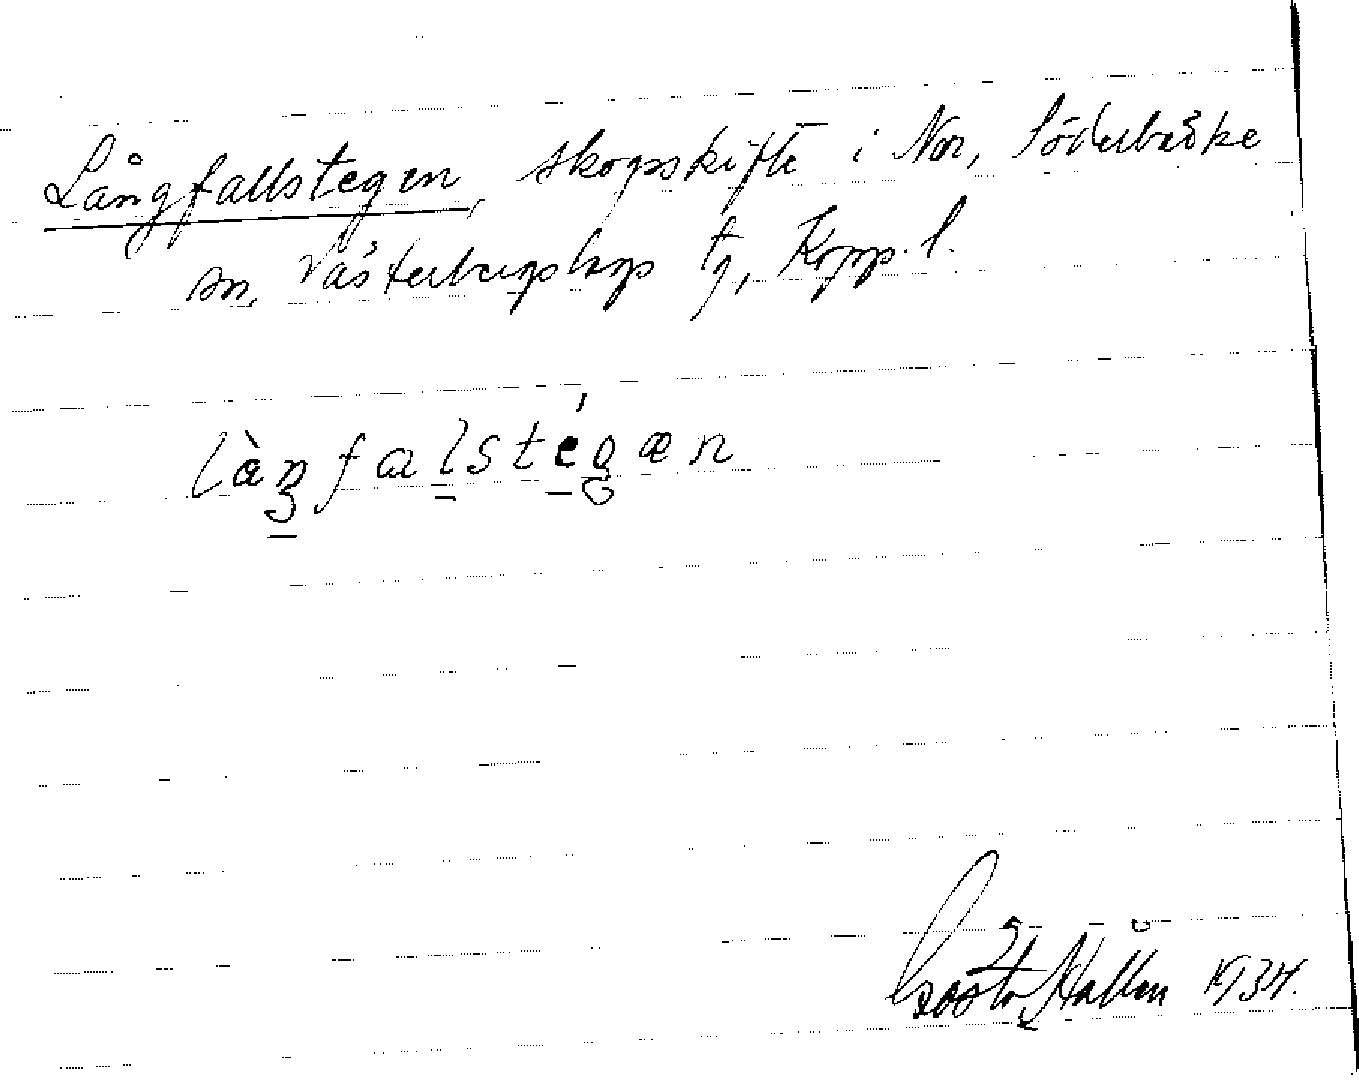 Långfallstegen, skogsskifte i Nor, Söderbärke
sn, Västerbergslags tg, Kopp. l.
Gösta Hallén 1934.